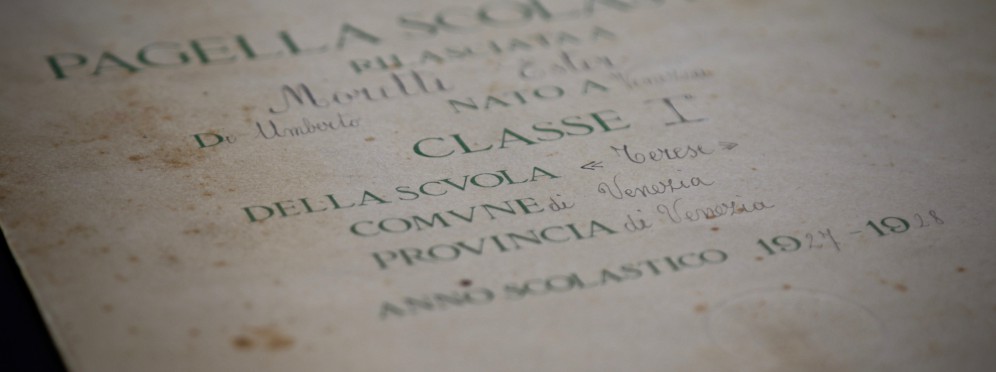 PAGELLA SCOLA
RILASCIATA A
Morelli Ester
Di Umberto NATO A Venezia
CLASSE Iª
DELLA SCVOLA « Terese »
COMVNE di Venezia
PROVINCIA di Venezia
ANNO SCOLASTICO 1927-1928